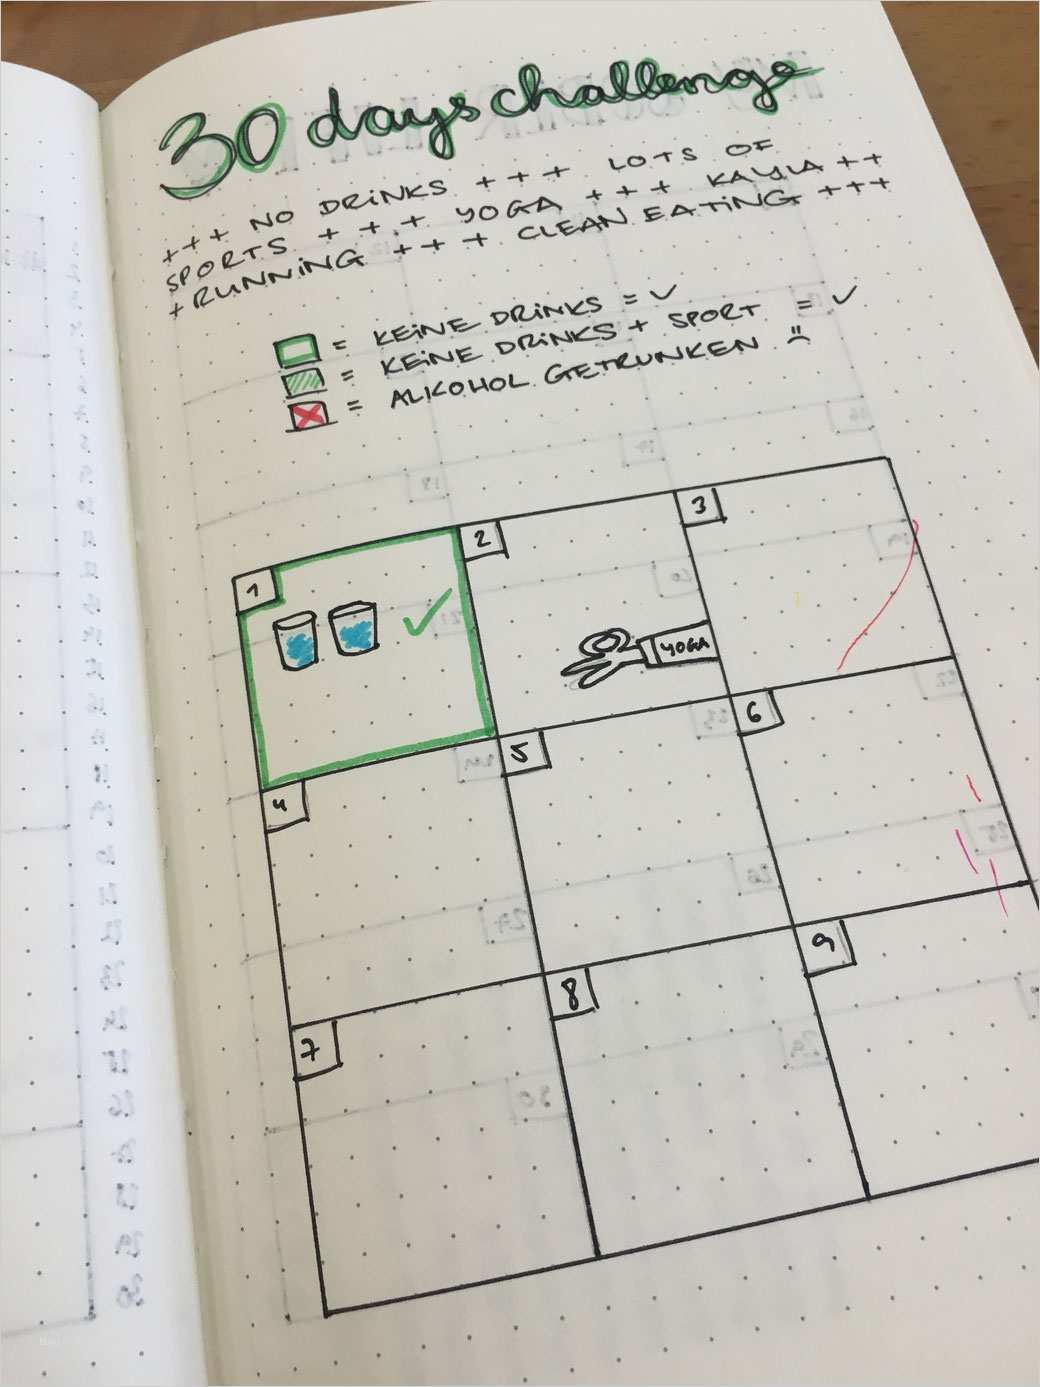 30 days challenge
+++ NO DRINKS +++ LOTS OF
SPORTS +++ YOGA +++ KAYLA ++
+ RUNNING +++ CLEAN EATING +++
= KEINE DRINKS = ✓
= KEINE DRINKS + SPORT = ✓
= ALKOHOL GETRUNKEN :(
1
2
3
YOGA
4
5
6
7
8
9